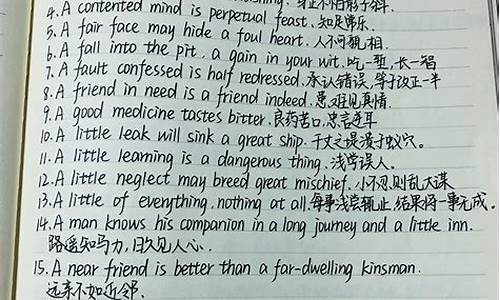 身正不怕影子斜.
4.A contented mind is perpetual feast. 知足常乐.
5.A fair face may hide a foul heart. 人不可貌相.
6.A fall into the pit, a gain in your wit. 吃一堑,长一智
7.A fault confessed is half redressed. 承认错误,等于改正一半
8.A friend in need is a friend indeed. 患难见真情.
9.A good medicine tastes bitter. 良药苦口,忠言逆耳
10.A little leak will sink a great ship. 千丈之堤溃于蚁穴。
11.A little learning is a dangerous thing. 浅学误人。
12.A little neglect may breed great mischief. 小不忍,则乱大谋
13.A little of everything, nothing at all. 每事浅尝辄止,结果将一事无成。
14.A man knows his companion in a long journey and a little inn.
路遥知马力,日久见人心.
15.A near friend is better than a far-dwelling kinsman.
远亲不如近邻.